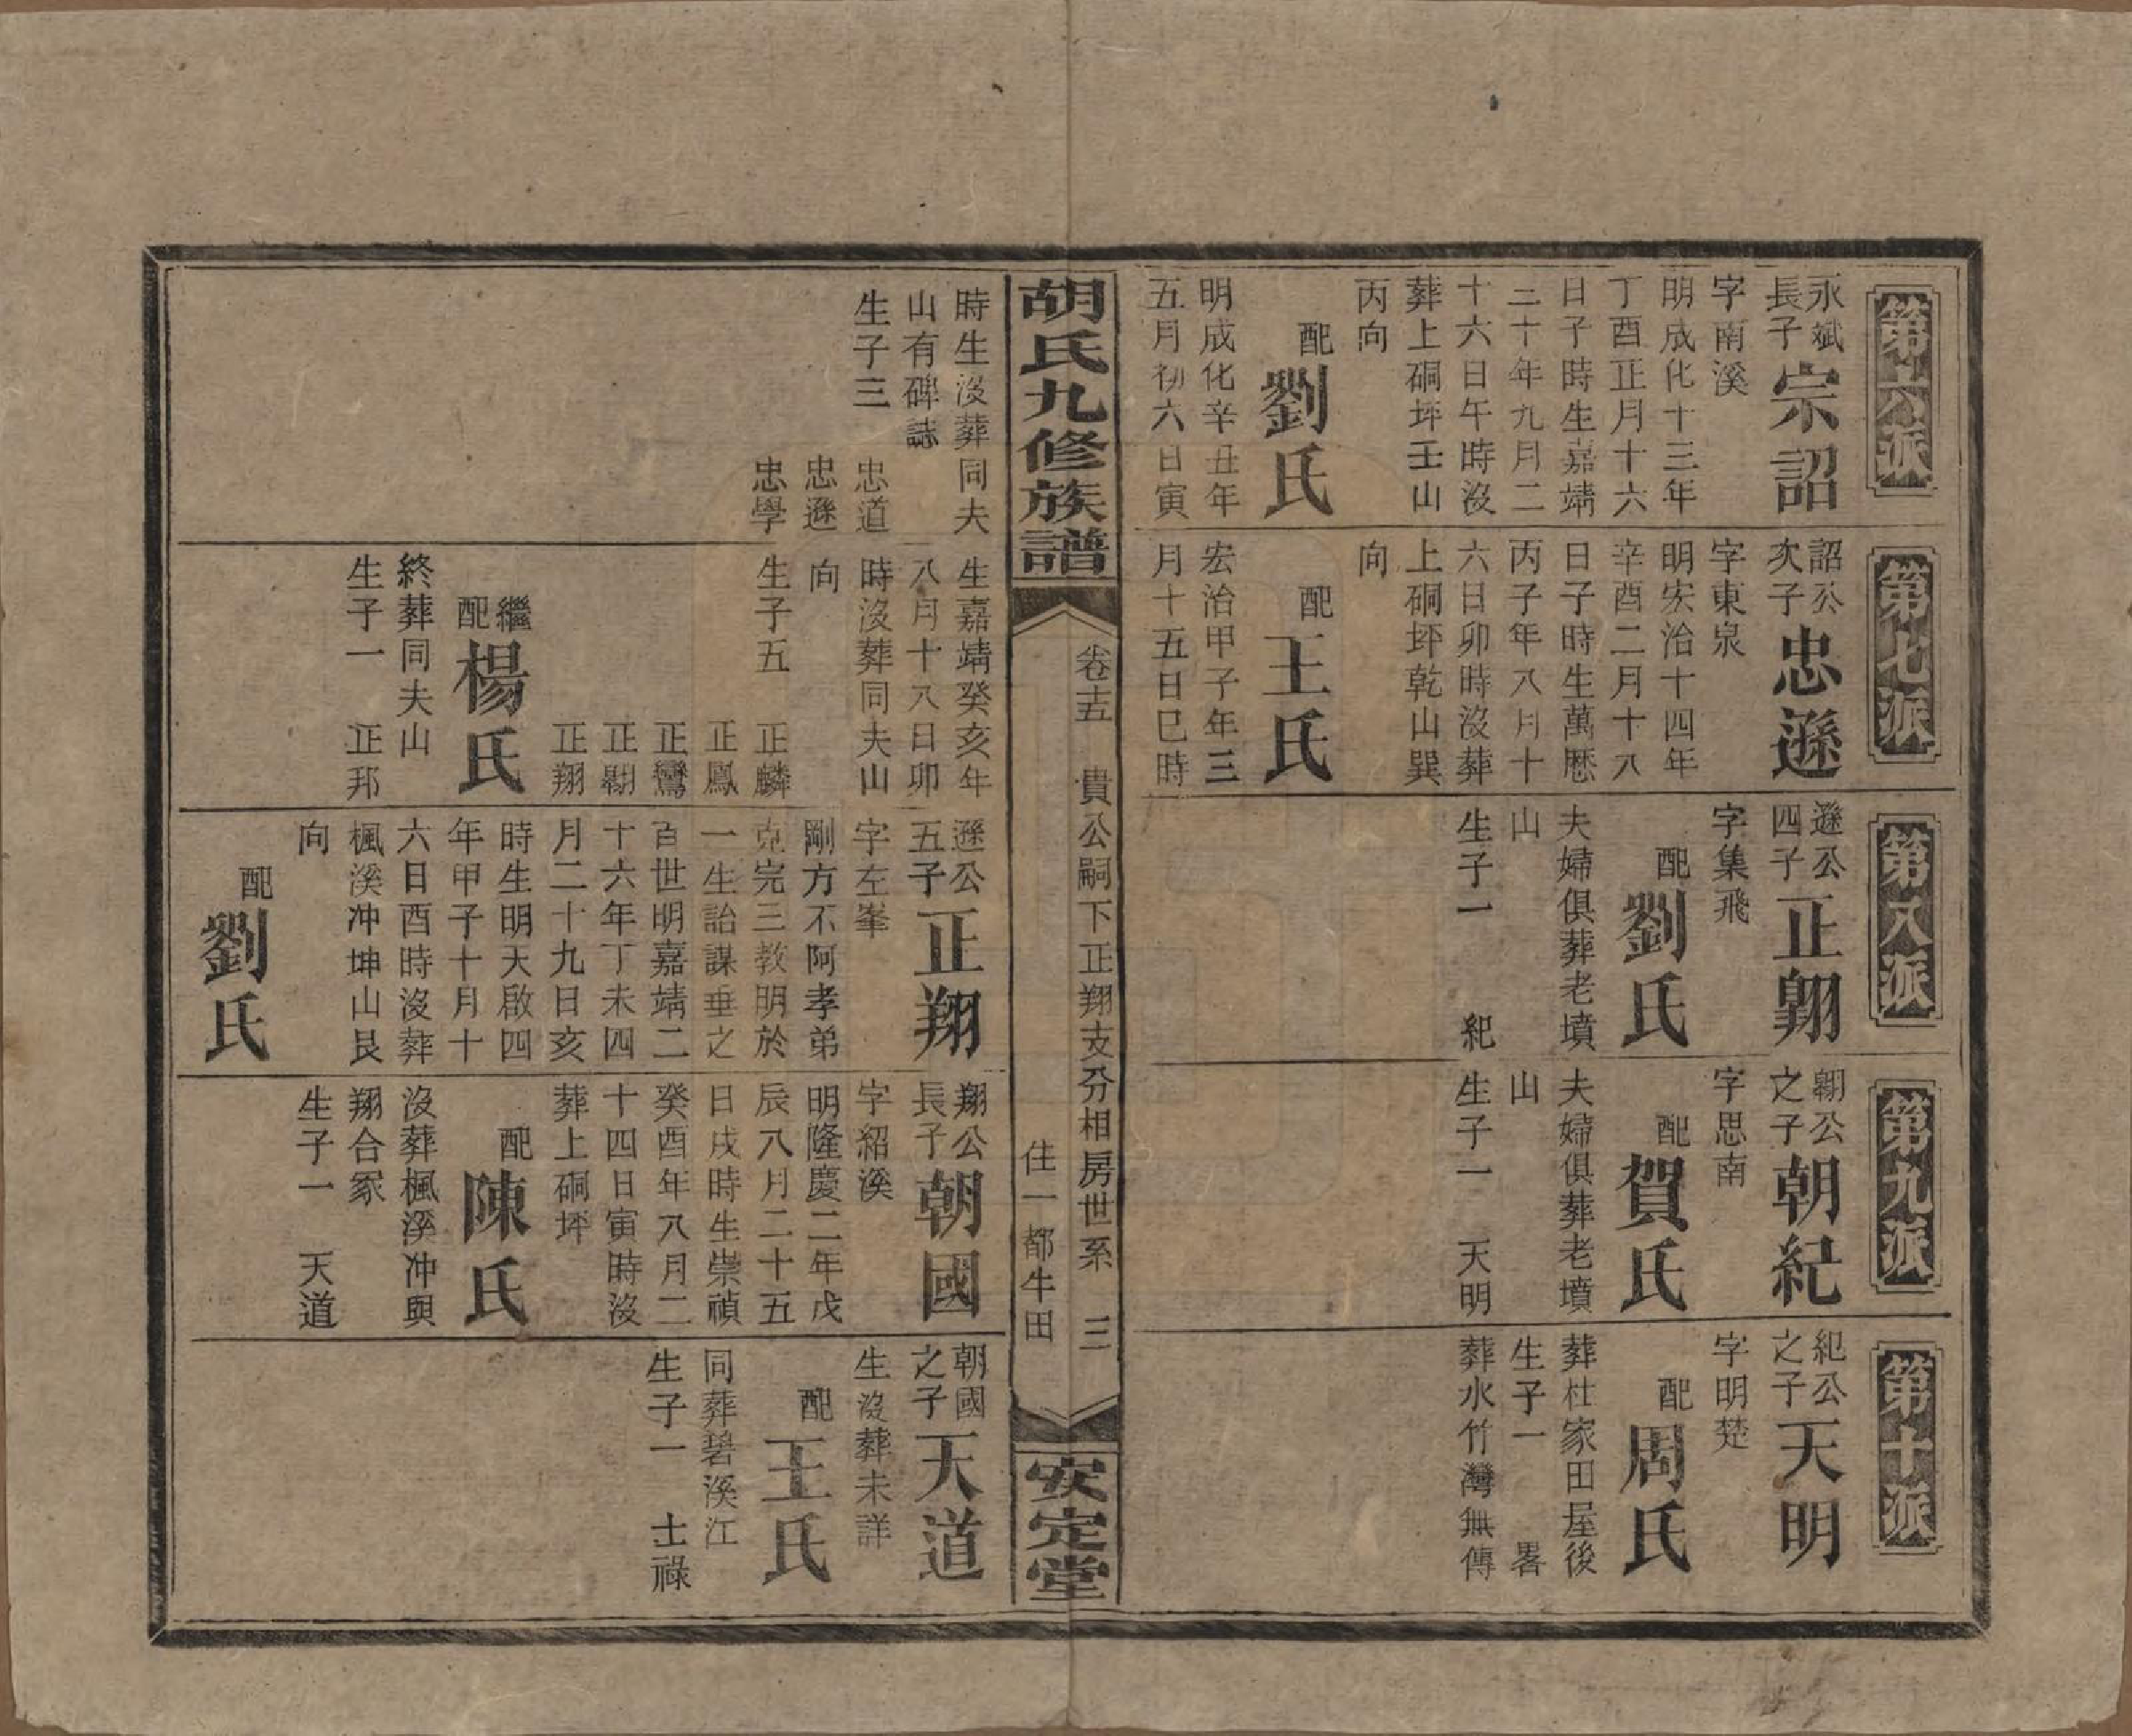 第六派
永斌
長子
宗詔
字南溪
明成化十三年
丁酉正月十六
日子時生嘉靖
二十年九月二
十六日午時沒
葬上硐坪壬山
丙向
配
劉氏
明成化辛丑年
五月初六日寅
第七派
詔公
次子
忠遜
字東泉
明宏治十四年
辛酉二月十八
日子時生萬歷
丙子年八月十
六日卯時沒葬
上硐坪乾山巽
向
配
王氏
宏治甲子年三
月十五日巳時
第八派
遜公
四子
正翱
字集飛
配
劉氏
夫婦俱葬老墳
山
生子一 紀
第九派
翱公
之子
朝紀
字思南
配
賀氏
夫婦俱葬老墳
山
生子一 天明
第十派
紀公
之子
天明
字明楚
配
周氏
葬杜家田屋後
生子一 畧
葬水竹灣無傳
胡氏九修族譜
卷十五 貴公嗣下正翔支分相房世系 三
住一都牛田
安定堂
時生沒葬同夫
山有碑誌
生子三 忠道
忠遜
忠學
生嘉靖癸亥年
八月十八日卯
時沒葬同夫山
向
生子五 正麟
正鳳
正鸞
正翱
正翔
繼
配
楊氏
終葬同夫山
生子一 正邦
遜公
五子
正翔
字左峯
剛方不阿孝弟
克完三教明於
一生詒謀垂之
百世明嘉靖二
十六年丁未四
月二十九日亥
時生明天啟四
年甲子十月十
六日酉時沒葬
楓溪冲坤山艮
向
配
劉氏
翔公
長子
朝國
字紹溪
明隆慶二年戊
辰八月二十五
日戌時生崇禎
癸酉年八月二
十四日寅時沒
葬上硐坪
配
陳氏
沒葬楓溪冲與
翔合冢
生子一 天道
朝國
之子
天道
生沒葬未詳
配
王氏
同葬碧溪江
生子一 士祿